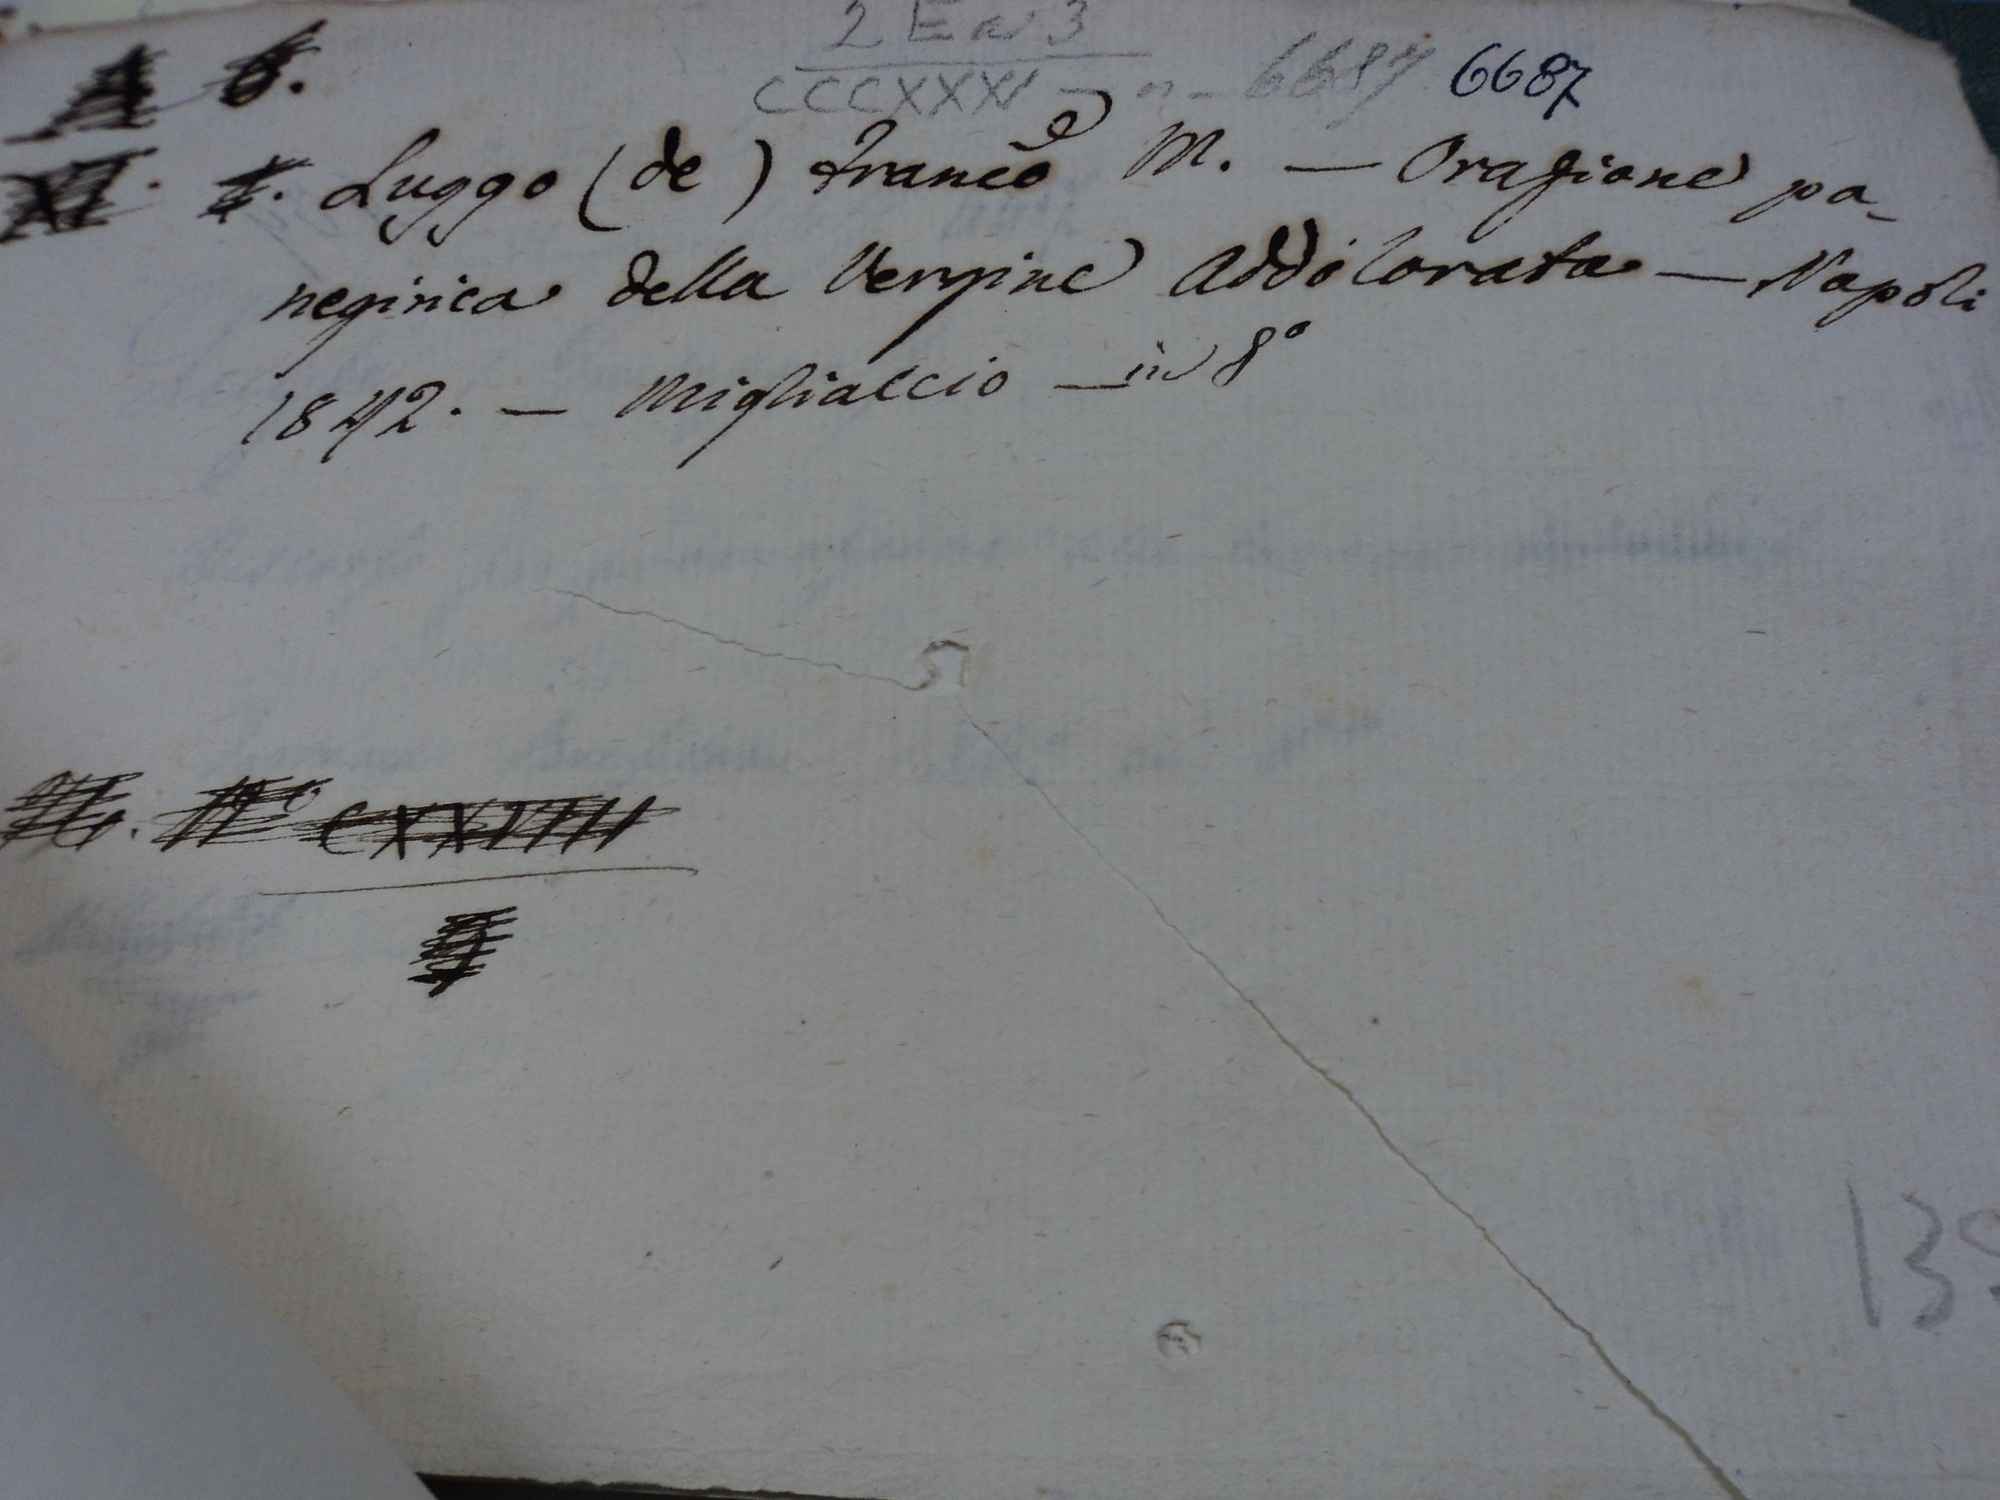 A 6.
CCCXXXV - n - 6687 6687
XI. Luggo (de) Franc.o M. — Orazione pa-
negirica della Vergine Addolorata — Napoli
1842. — Migliaccio — in 8°
N° CXXVIIII